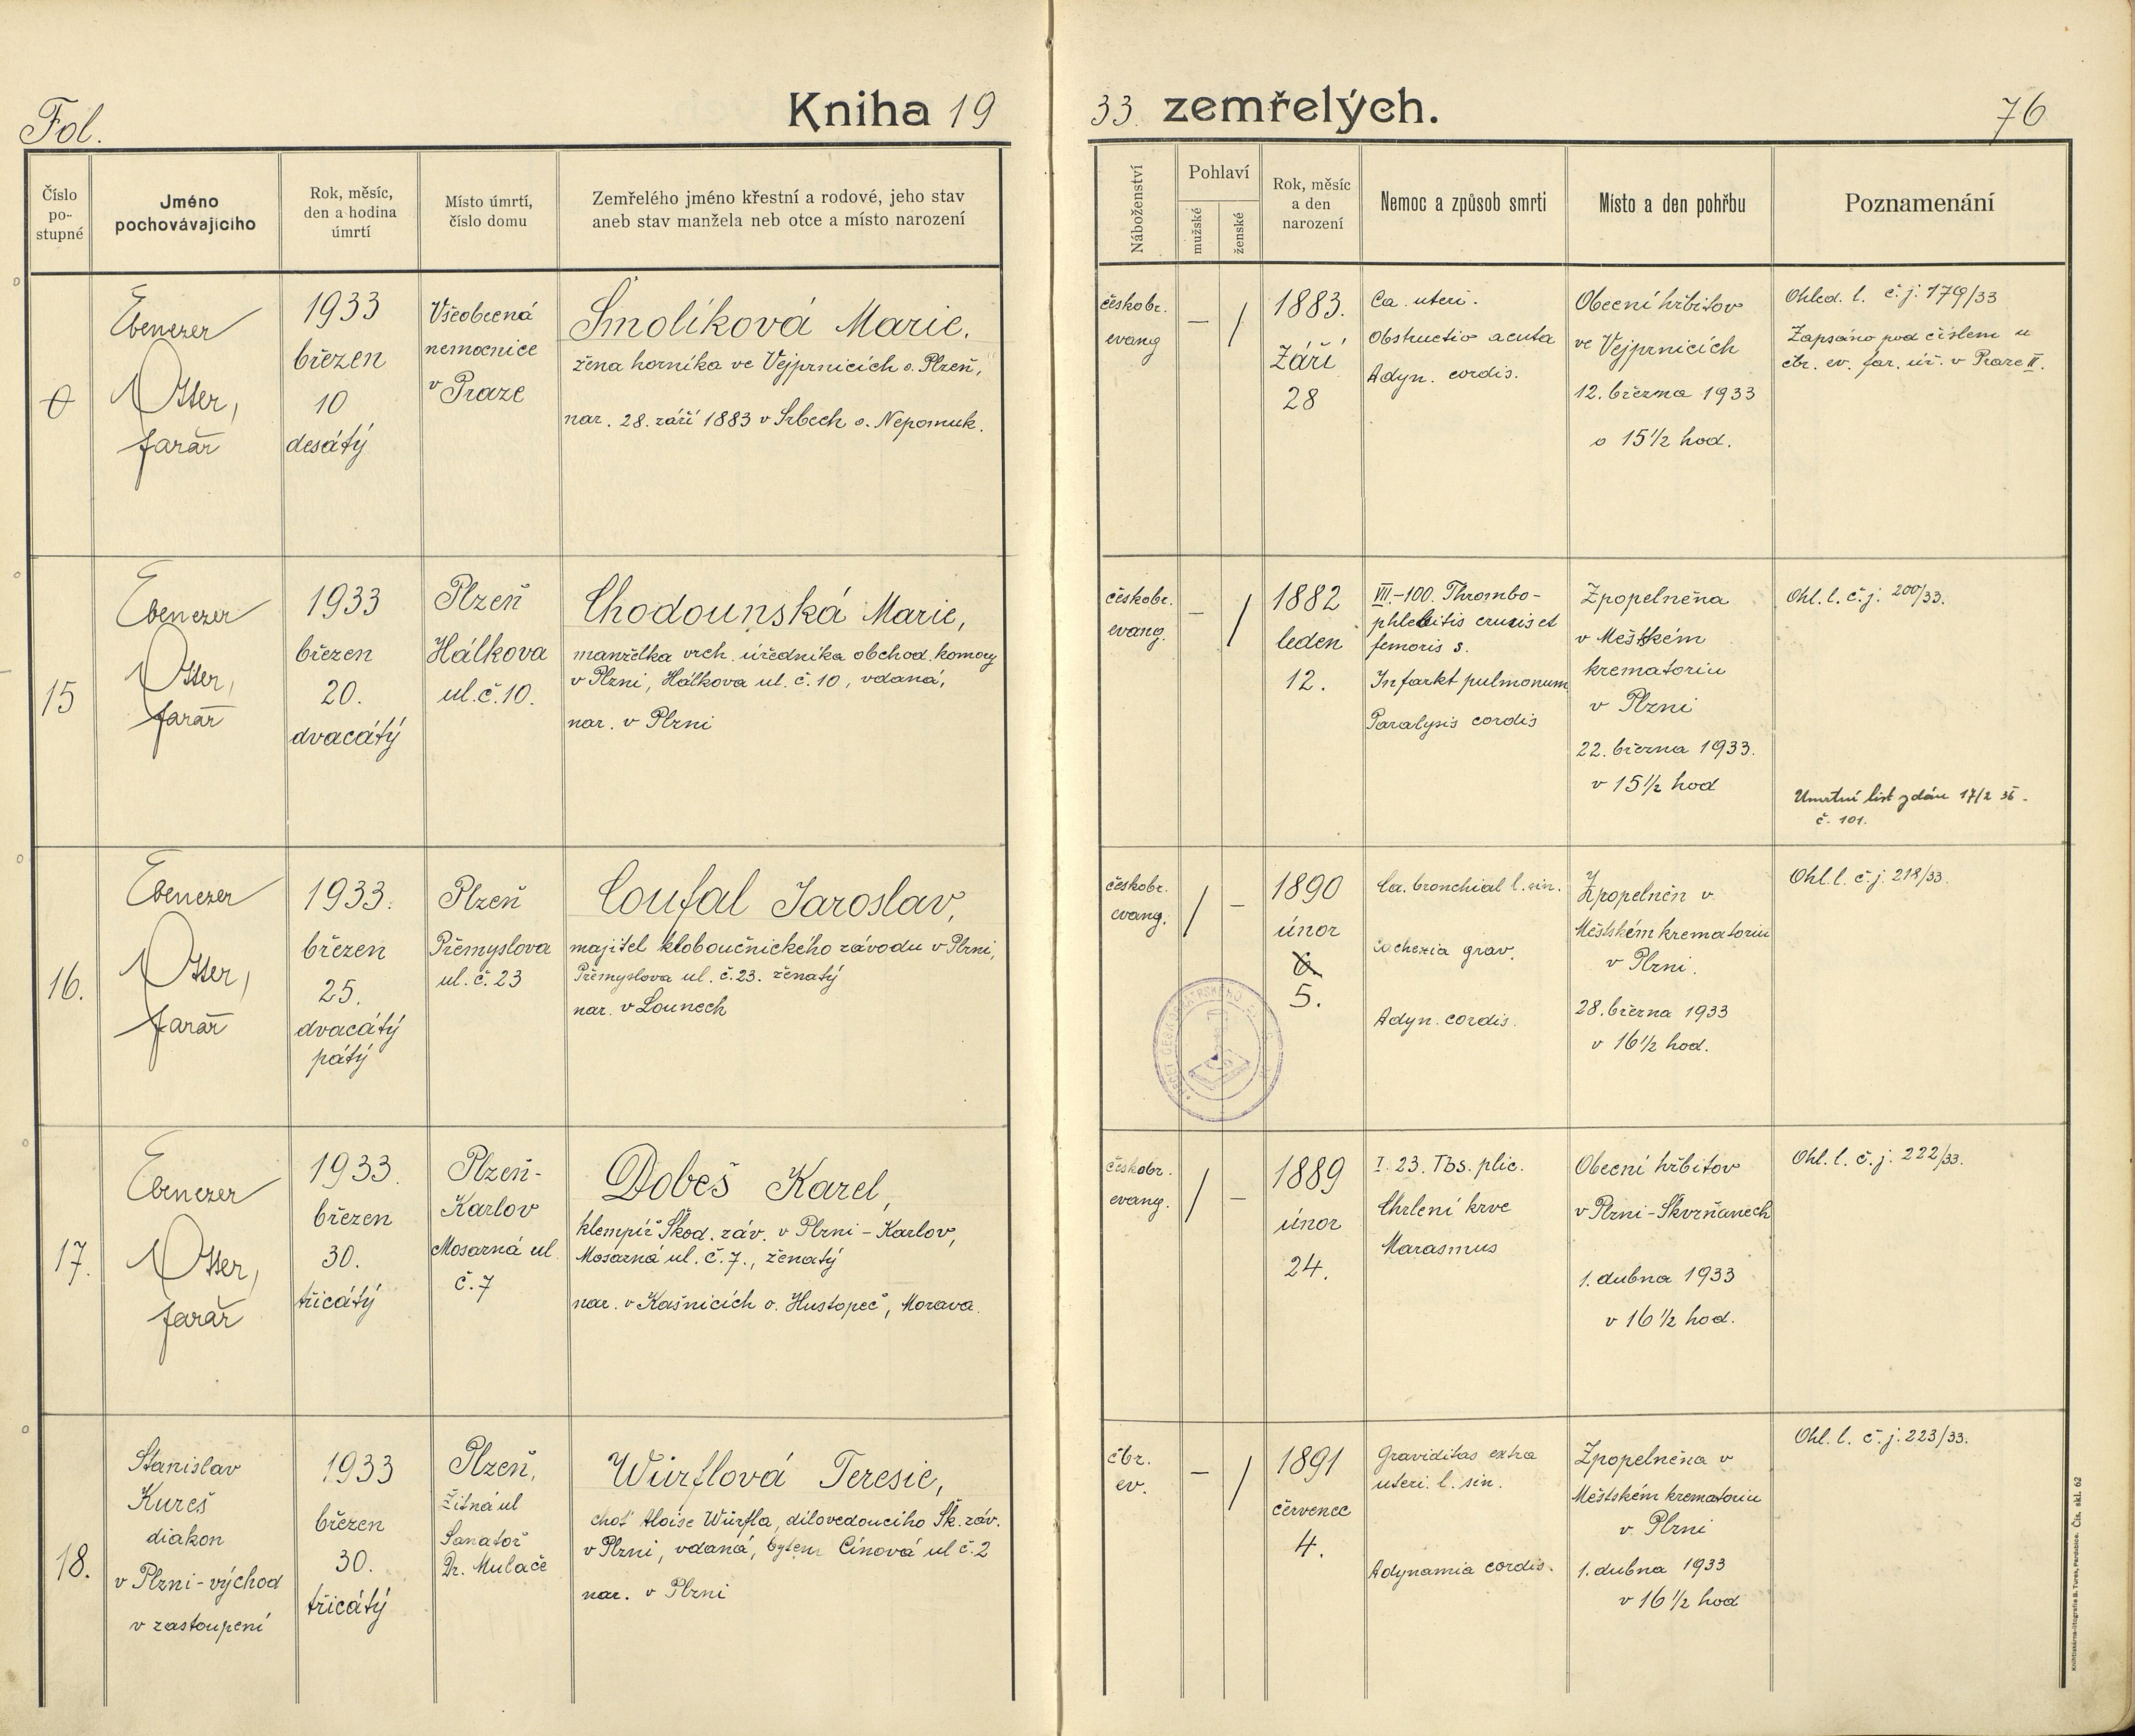 Fol.
Kniha 19
33. zemřelých.
76
Číslo po-stupné
Jméno pochovávajícího
Rok, měsíc, den a hodina úmrtí
Místo úmrtí, číslo domu
Zemřelého jméno křestní a rodové, jeho stav
aneb stav manžela neb otce a místo narození
Náboženství
Pohlaví
mužské
ženské
Rok, měsíc a den narození
Nemoc a způsob smrti
Místo a den pohřbu
Poznamenání
0
Ebenezer
Otter,
farář
1933
březen
10
desátý
Všeobecná
nemocnice
v Praze
Smolíková Marie,
žena horníka ve Vejprnicích o. Plzeň,
nar. 28. září 1883 v Srbech o. Nepomuk.
českobr.
evang
—
/
1883.
Září
28
Ca. uteri.
Obstructio acuta
Adyn. cordis.
Obecní hřbitov
ve Vejprnicích
12. března 1933
o 15 1/2 hod.
Ohled. l. č. j. 179/33
Zapsáno pod číslem u
čbr. ev. far. úř. v Praze II.
15
Ebenezer
Otter,
farář
1933
březen
20.
dvacátý
Plzeň
Hálkova
ul. č. 10.
Chodounská Marie,
manželka vrch. úředníka obchod. komory
v Plzni, Hálkova ul. č. 10, vdaná,
nar. v Plzni
českobr.
evang.
—
/
1882
leden
12.
VIII.-100. Thrombo-
phlebitis cruris et
femoris s.
Infarkt pulmonum
Paralysis cordis
Zpopelněna
v Městském
krematoriu
v Plzni
22. března 1933.
v 15 1/2 hod
Ohl. l. č. j. 200/33.
Úmrtní list vydán 17/2 36.
č. 101.
16.
Ebenezer
Otter,
farář
1933.
březen
25.
dvacátý
pátý
Plzeň
Přemyslova
ul. č. 23
Coufal Jaroslav,
majitel kloboučnického závodu v Plzni,
Přemyslova ul. č. 23. ženatý
nar. v Lounech
českobr.
evang.
/
—
1890
únor
6.
5.
Ca. bronchial l. sin.
Cachexia grav.
Adyn. cordis.
Zpopelněn v
Městském krematoriu
v Plzni.
28. března 1933
v 16 1/2 hod.
Ohl. l. č. j. 218/33.
17.
Ebenezer
Otter,
farář
1933.
březen
30.
třicátý
Plzeň-
Karlov
Mosazná ul.
č. 7
Dobeš Karel,
klempíř Škod. záv. v Plzni - Karlov,
Mosazná ul. č. 7., ženatý
nar. v Kašnicích o. Hustopeč, Morava.
českobr.
evang.
/
—
1889
únor
24.
I. 23. Tbs. plic.
Chrlení krve
Marasmus
Obecní hřbitov
v Plzni-Skvrňanech
1. dubna 1933
v 16 1/2 hod.
Ohl. l. č. j. 222/33.
18.
Stanislav
Kureš
diakon
v Plzni-východ
v zastoupení
1933
březen
30.
třicátý
Plzeň,
Žitná ul
Sanatoř
Dr. Mulače
Würflová Teresie,
choť Aloise Würfla, dílovedoucího Šk. záv.
v Plzni, vdaná, bytem Cínová ul č. 2
nar. v Plzni
čbr.
ev.
—
/
1891
červenec
4.
Graviditas extra
uteri. l. sin.
Adynamia cordis.
Zpopelněna v
Městském krematoriu
v. Plzni
1. dubna 1933
v 16 1/2 hod
Ohl. l. č. j. 223/33.